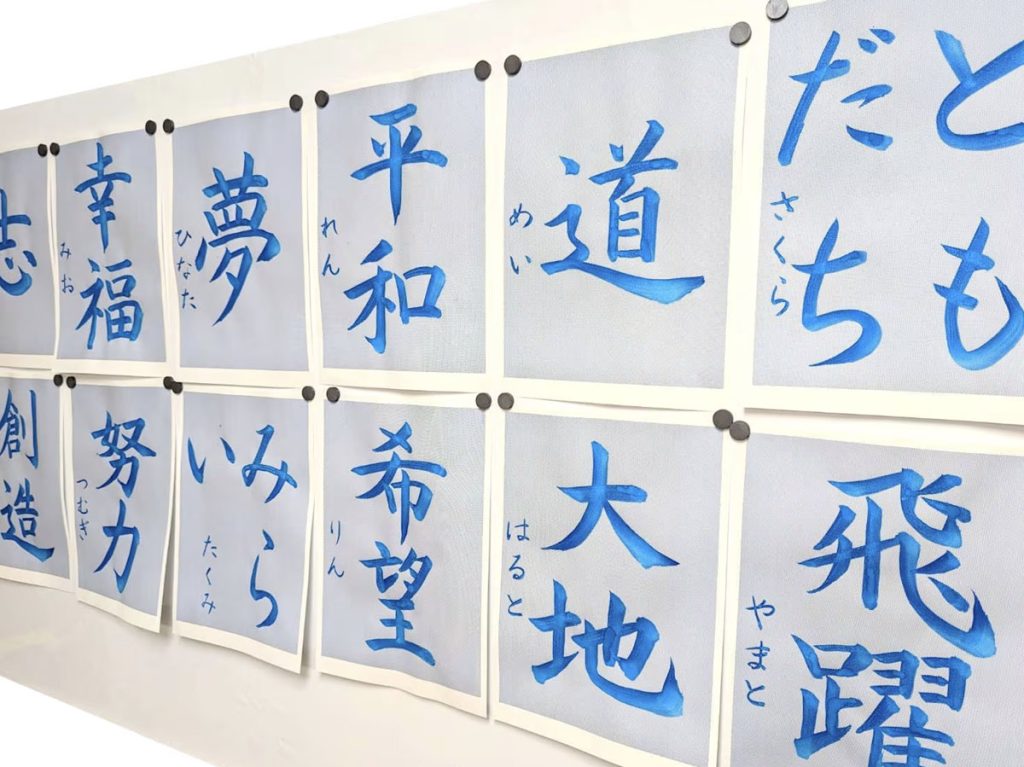 志
幸福
みお
夢
ひなた
平和
れん
道
めい
とも
だち
さくら
創造
努力
つむぎ
みら
い
たくみ
希望
りん
大地
はると
飛躍
やまと